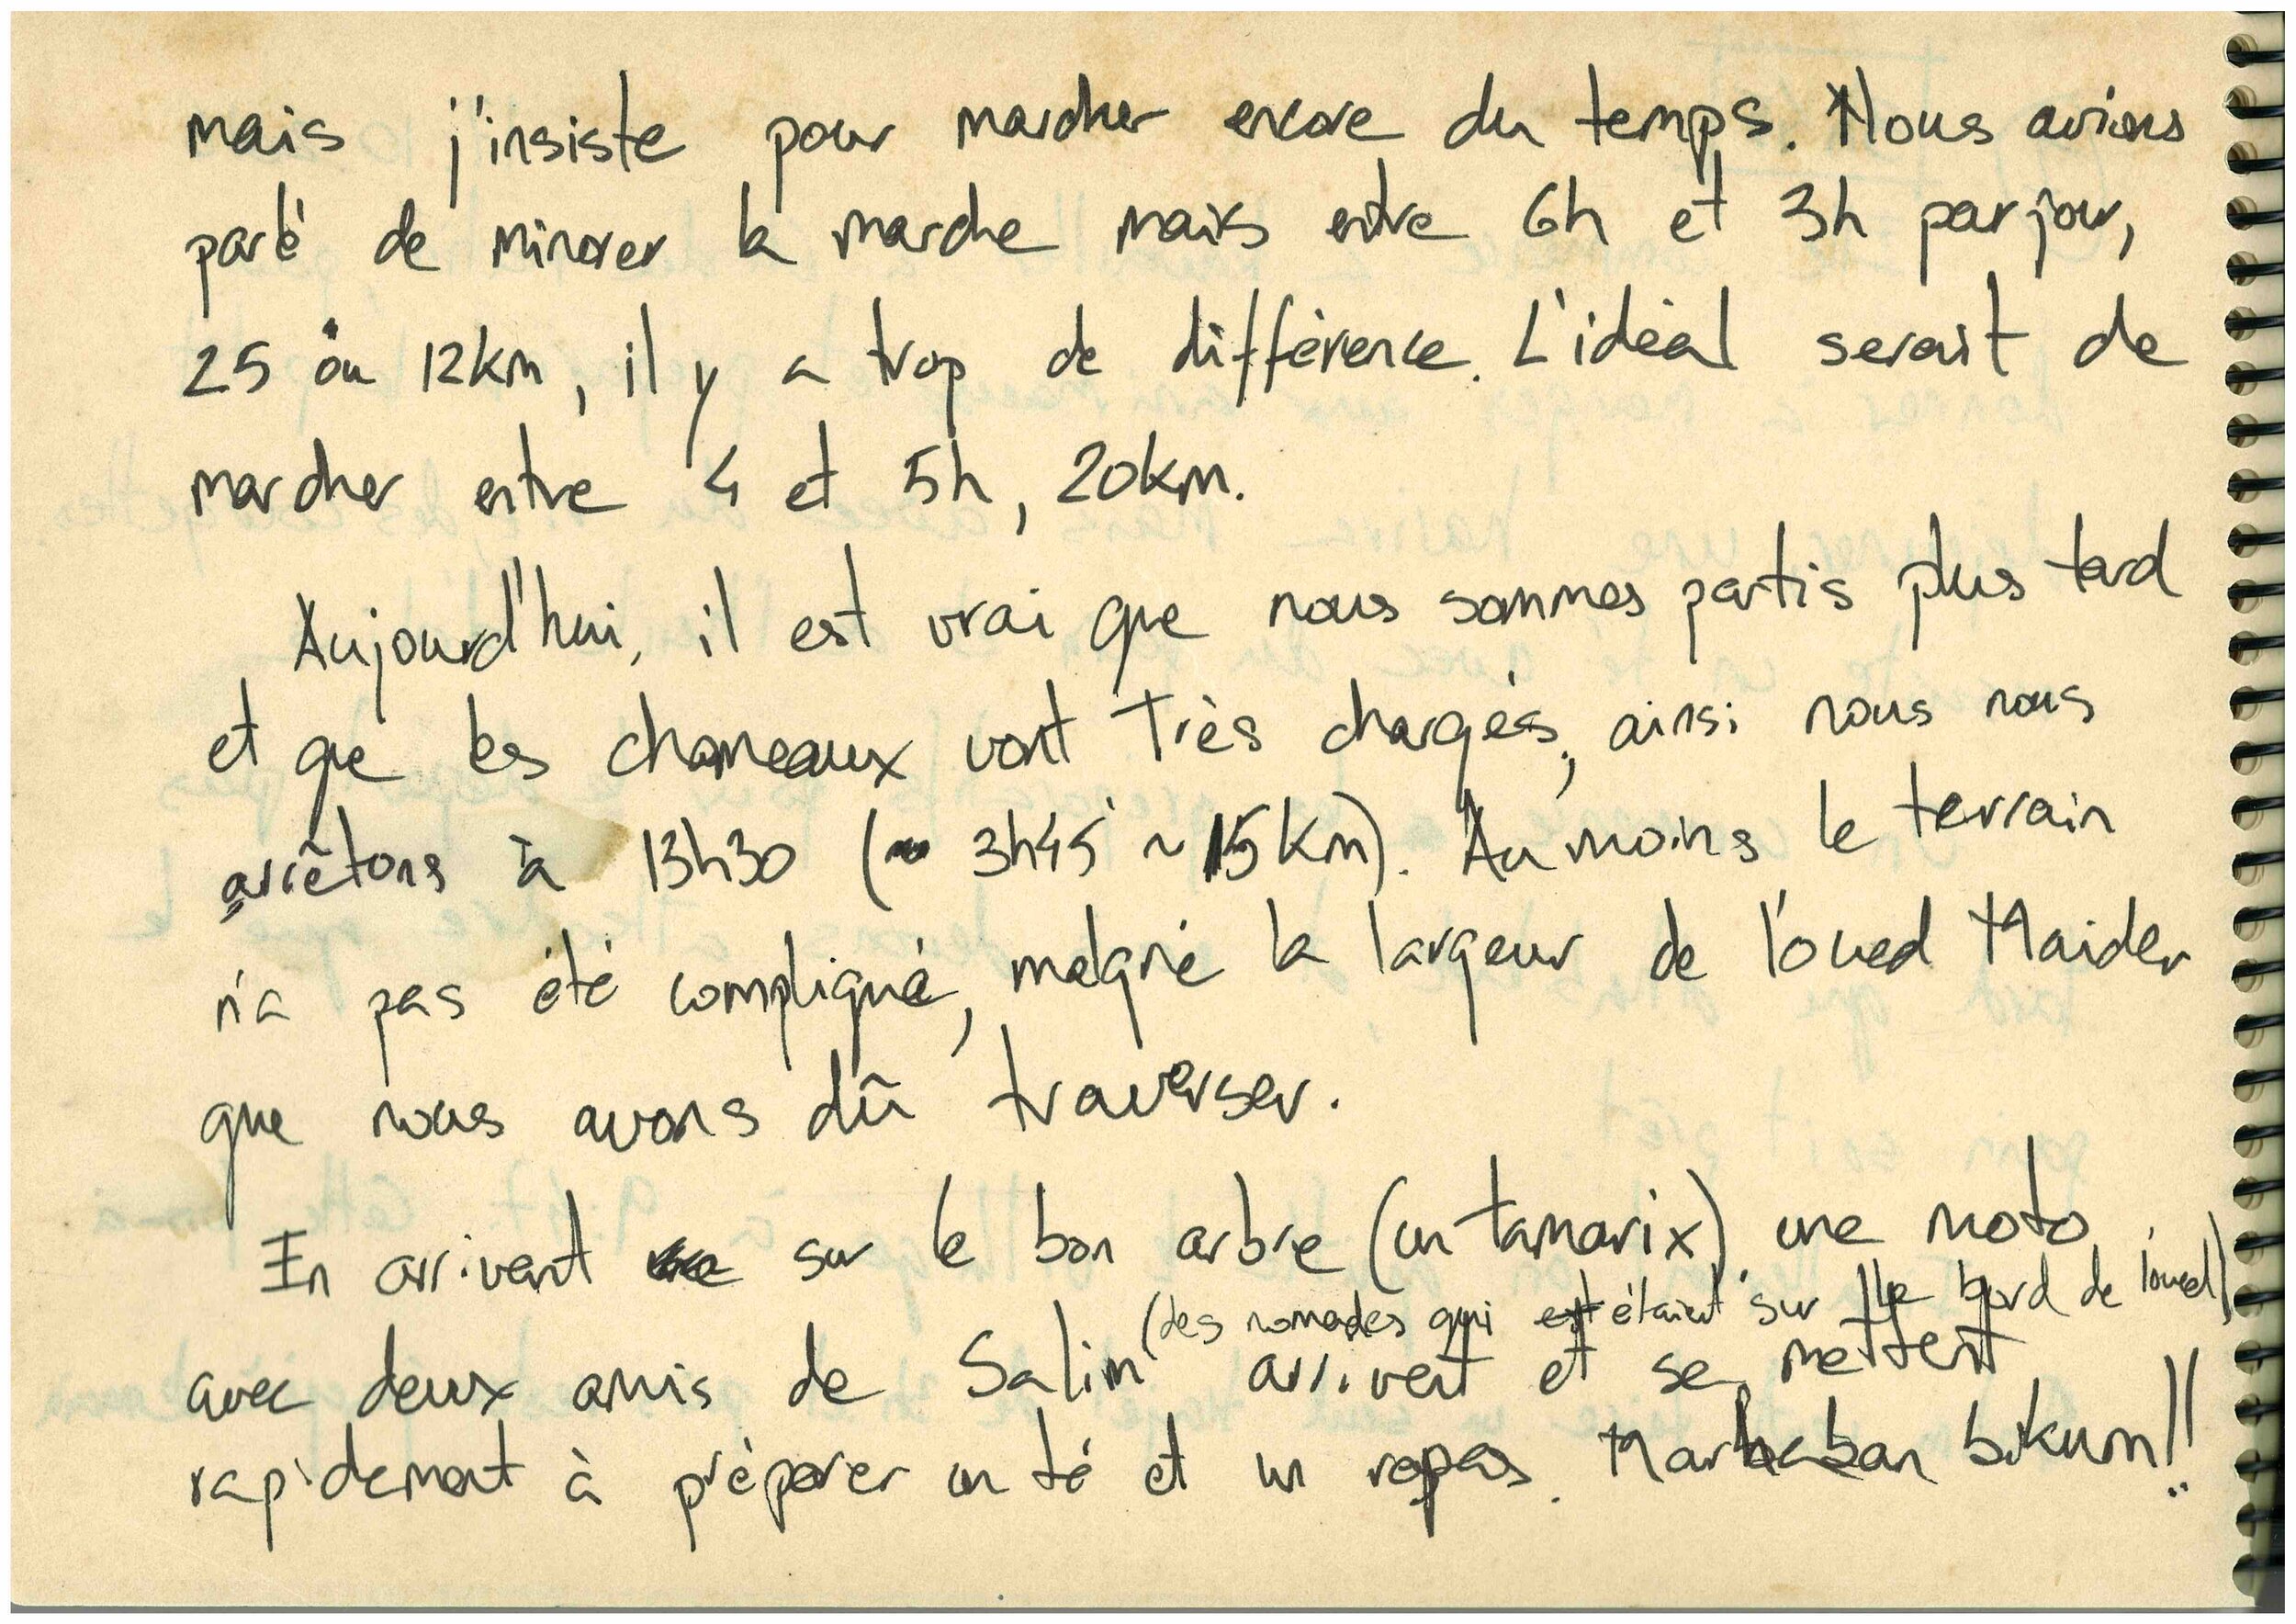 mais j'insiste pour marcher encore du temps. Nous avions
parlé de minorer la marche mais entre 6h et 3h par jour,
25 ou 12km, il y a trop de différence. L'idéal serait de
marcher entre 4 et 5h, 20km.
Aujourd'hui, il est vrai que nous sommes partis plus tard
et que les chameaux vont très chargés, ainsi nous nous
arrêtons à 13h30 (~ 3h45 ~ 15km). Au moins le terrain
n'a pas été compliqué, malgré la largeur de l'oued Maider
que nous avons dû traverser.
En arrivant sur le bon arbre (un tamarix), une moto
(des nomades qui est étaient sur le bord de l'oued)
avec deux amis de Salim arrivent et se mettent
rapidement à préparer un té et un repas. Marhaban bikum!!